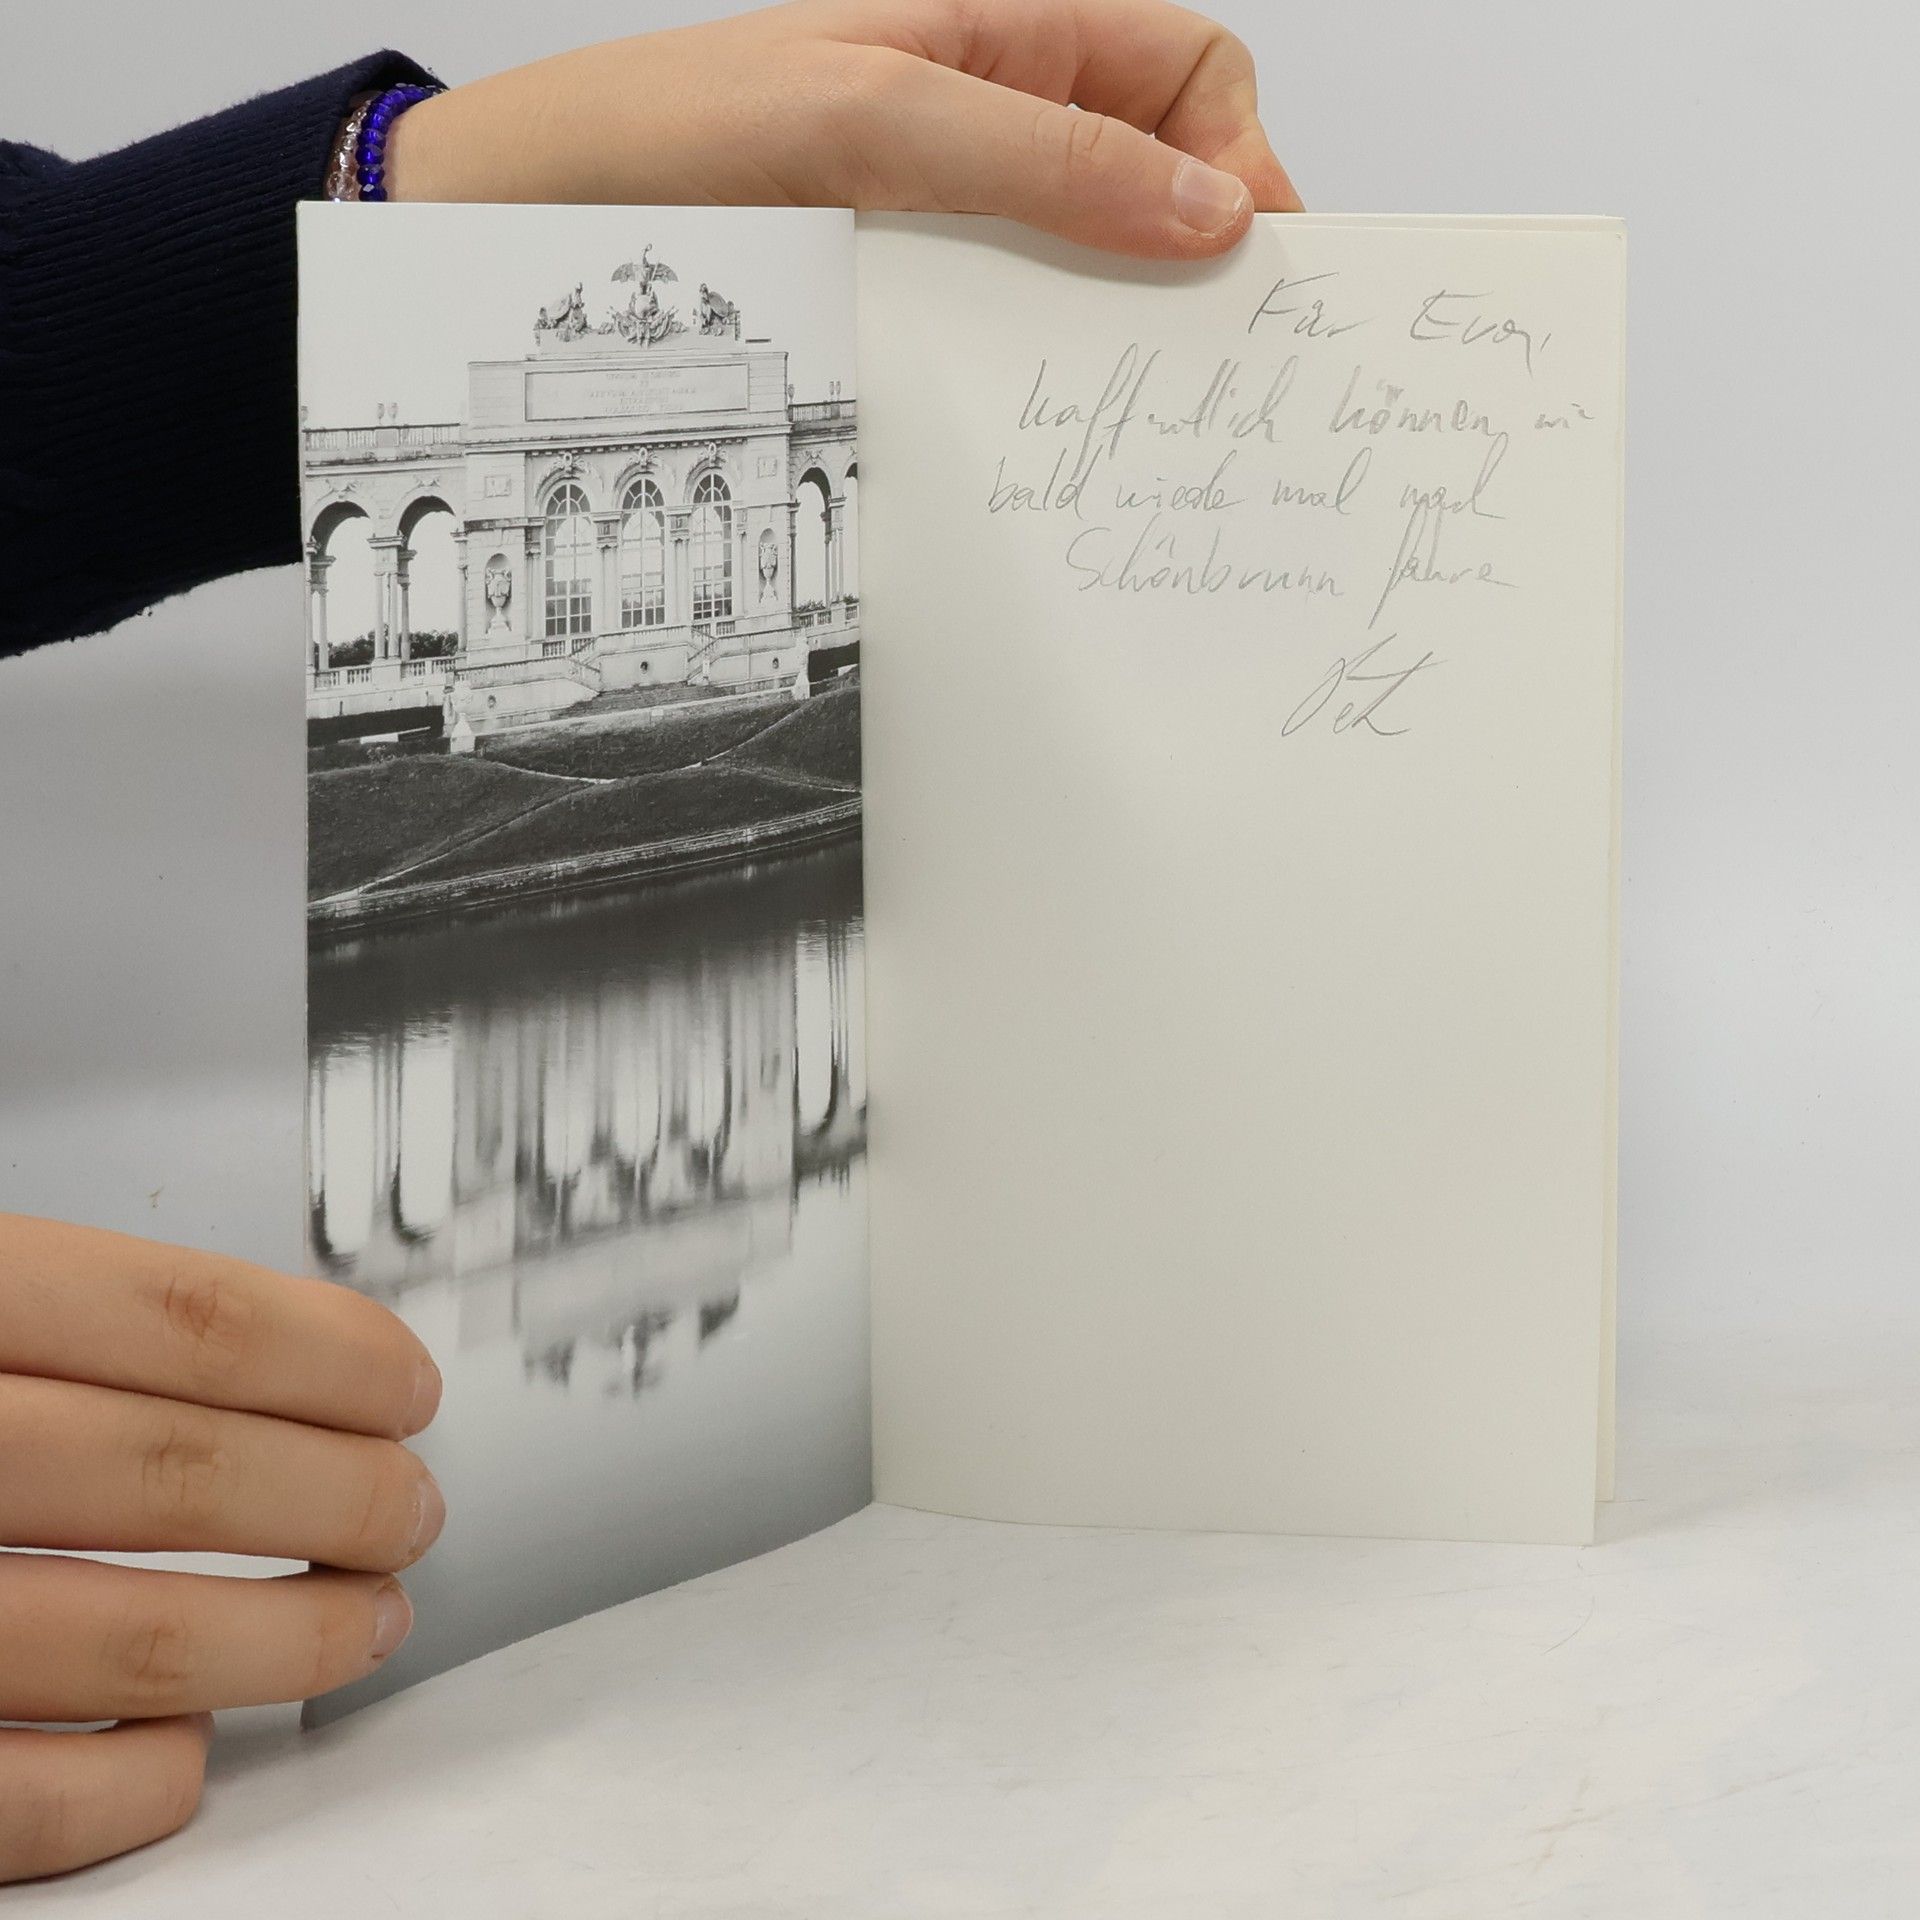 Für Eva,
hoffentlich können wir
bald wieder mal nach
Schönbrunn fahren